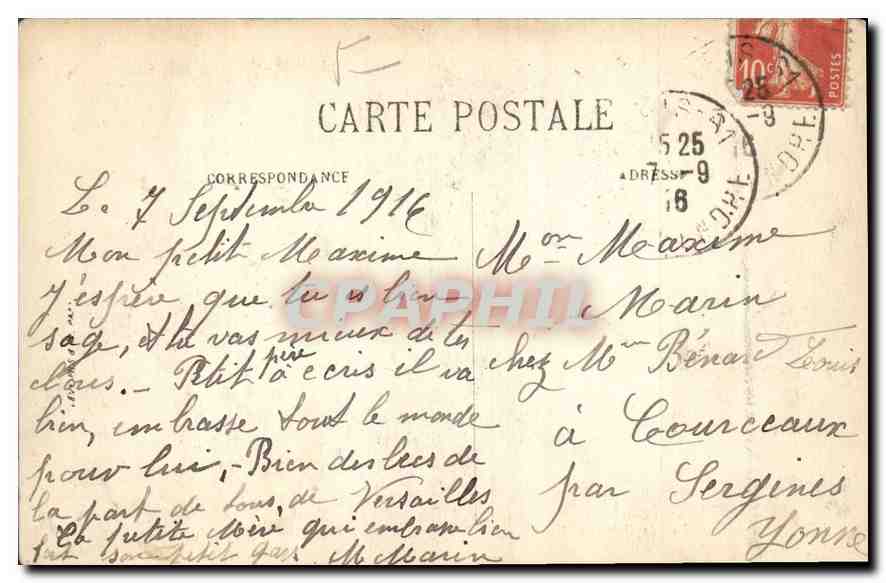 CARTE POSTALE
CORRESPONDANCE
ADRESSE
10c
POSTES
25
-9
15 25
7 -9
16
INDRE
Le 7 Septembre 1916
Mon petit Maxime
J'espère que tu es bien
sage, et tu vas mieux de tes
clous. - Petit père a ecris il va
bien, embrasse tout le monde
pour lui, - Bien des bees de
la part de tous, de Versailles
Ta petite Mère qui embrasse bien
fort son petit gas M Marin
Mon Maxime
Marin
chez Mme Bénard Louis
à Courceaux
par Sergines
Yonne
CPAPHIL